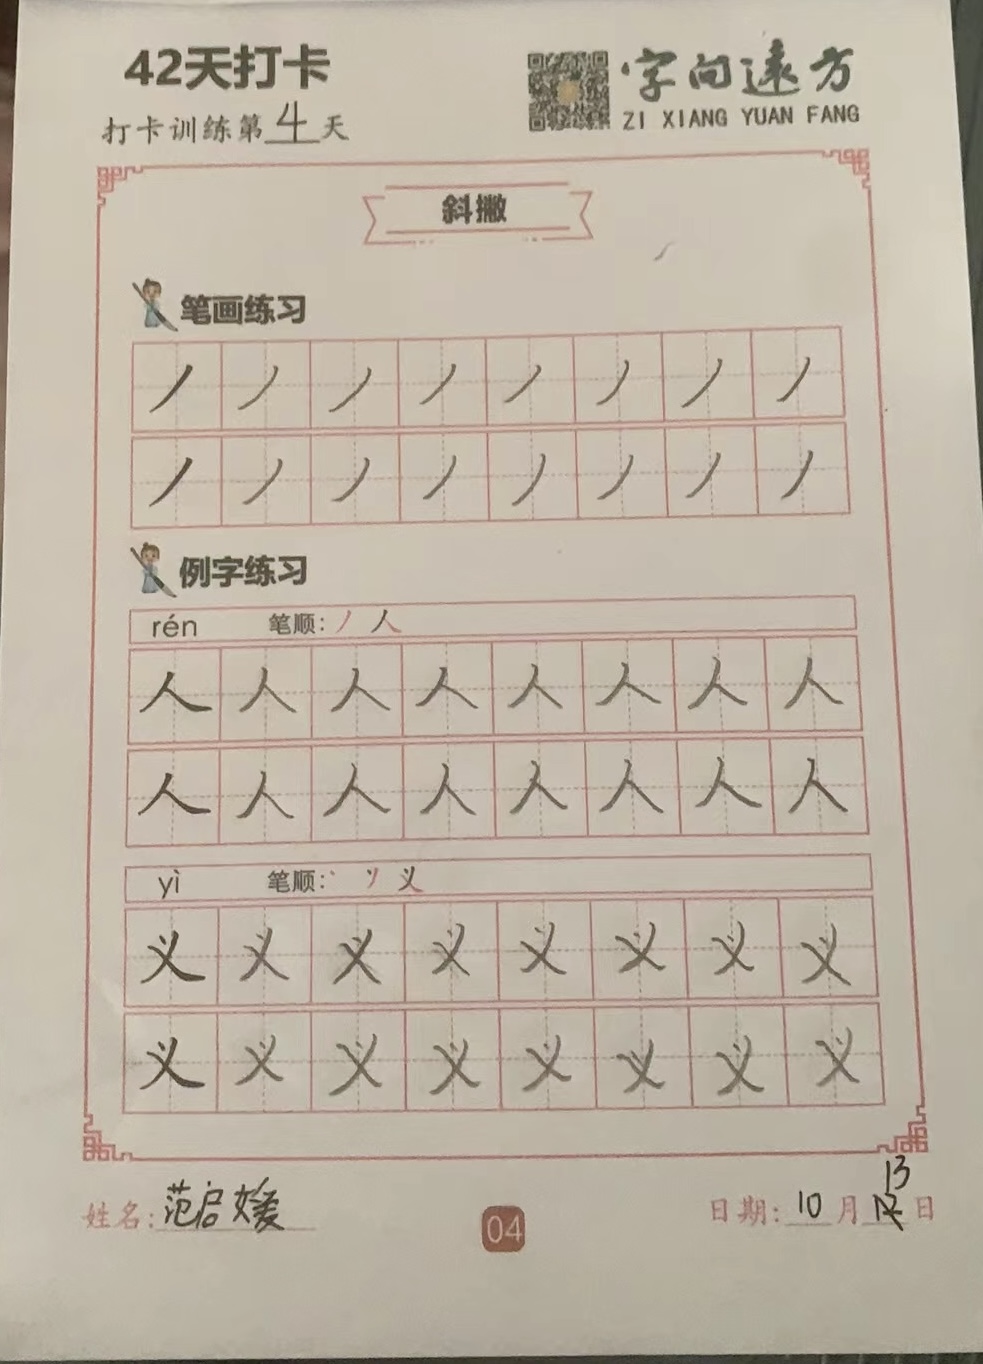 42天打卡
字向遠方
打卡训练第4天
ZI XIANG YUAN FANG
斜撇
笔画练习
丿丿丿丿丿丿丿丿
丿丿丿丿丿丿丿丿
例字练习
rén 笔顺: 丿 人
人人人人人人人人
人人人人人人人人
yì 笔顺: 丶 丷 义
义义义义义义义义
义义义义义义义义
13
姓名: 范启媛
04
日期: 10月 日